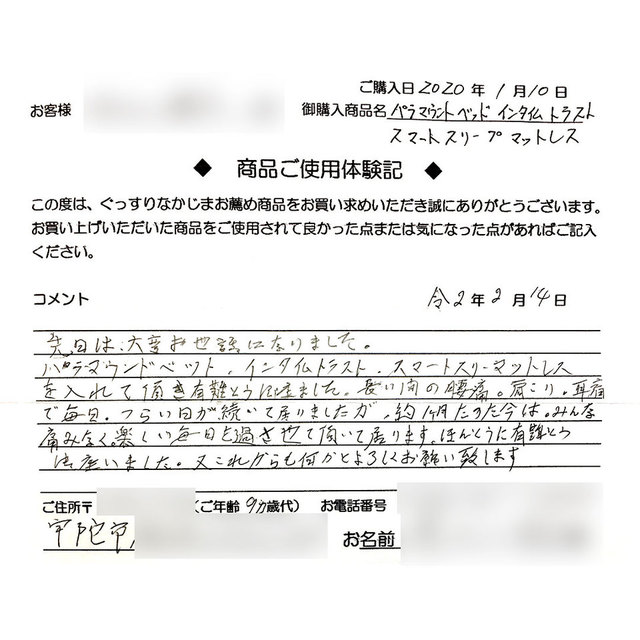 ご購入日2020年1月10日
お客様
御購入商品名 パラマウントベッド インタイム トラスト
スマートスリープ マットレス
◆ 商品ご使用体験記 ◆
この度は、ぐっすりなかじまお薦め商品をお買い求めいただき誠にありがとうございます。
お買い上げいただいた商品をご使用されて良かった点または気になった点があればご記入
ください。
コメント
令2年2月14日
先日は、大変お世話になりました。
パラマウンドベット、インタイムトラスト、スマートスリーマットレス
を入れて頂き有難とう御座ました。長い間の腰痛。肩こり。耳痛
で毎日。つらい日が続いて居りましたが、約1ヶ月たった今は。みんな
痛みなく。楽しい毎日を過させて頂いて居ります。ほんとうに有難とう
御座いました。又これからも何かとよろしくお願い致します
ご住所〒
(ご年齢 90歳代)
お電話番号
宇陀市
お名前